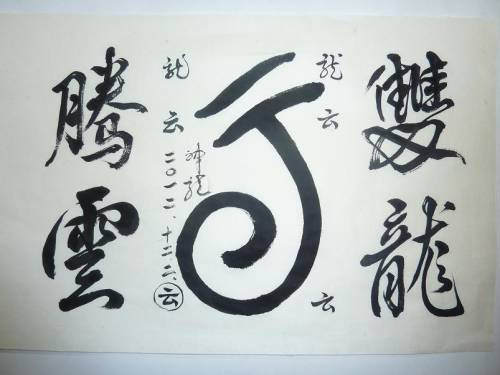 雙龍
龍云
云
神龍
龍云
二〇一二、十二、二、云
騰雲